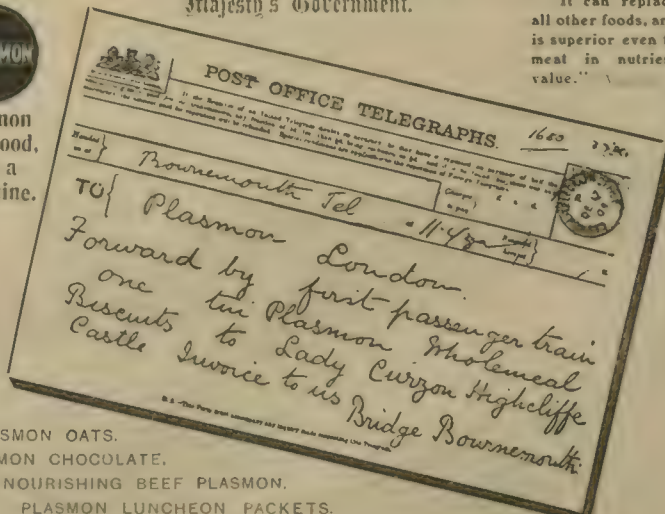 Majesty's Government.
It can replace
all other foods, an
is superior even t
meat in nutrien
value."
MON
mon
ood,
a
ine.
POST OFFICE TELEGRAPHS.
1680
Handed
in at
Bournemouth Tel
TO
Plasmon London.
Forward by first passenger train
one tin Plasmon Wholemeal
Biscuits to Lady Curzon Highcliffe
Castle Invoice to us
Bridge Bournemouth
SMON OATS.
MON CHOCOLATE.
NOURISHING BEEF PLASMON.
PLASMON LUNCHEON PACKETS.